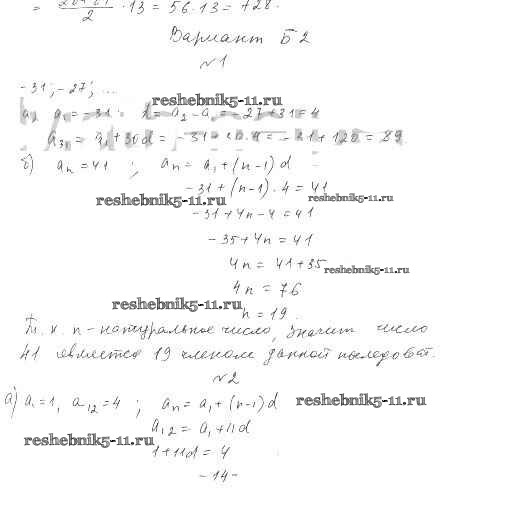 = 2 · 13 = 56 · 13 = 728.
Вариант Б2
№1
-31; -27; ...
reshebnik5-11.ru
a) a₁ = -31; d = a₂ - a₁ = -27 + 31 = 4
a₃₁ = a₁ + 30d = -31 + 30 · 4 = -31 + 120 = 89.
б) aₙ = 41 ; aₙ = a₁ + (n-1)d
-31 + (n-1) · 4 = 41
reshebnik5-11.ru reshebnik5-11.ru
-31 + 4n - 4 = 41
-35 + 4n = 41
4n = 41 + 35
reshebnik5-11.ru
4n = 76
reshebnik5-11.ru
n = 19.
Т.к. n - натуральное число, значит число
41 является 19 членом данной последоват.
№2
а) a₁ = 1, a₁₂ = 4 ; aₙ = a₁ + (n-1)d
reshebnik5-11.ru
a₁₂ = a₁ + 11d
reshebnik5-11.ru
1 + 11d = 4
-14-